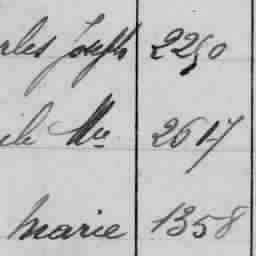 rles Joseph 2250
ile Mie 2617
Marie 1358